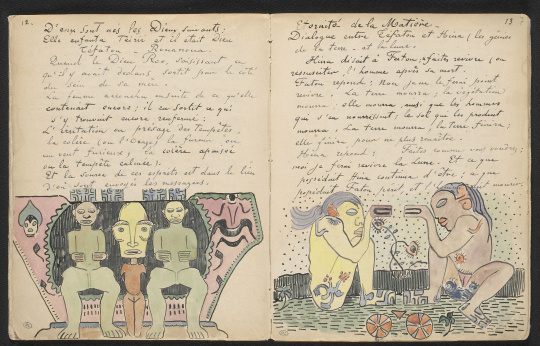 12.
D'eux sont nés les Dieux suivants:
Elle enfanta Teirii et il était Dieu
Téfatou Rouanoua.
Quand le Dieu Roo, saisissant ce
qu'il y avait dedans, sortit par le côté
du sein de sa mère.
La femme accoucha ensuite de ce qu'elle
contenait encore; il en sortit ce qui
s'y trouvait encore renfermé:
L'irritation ou présage des tempêtes.
la colère (ou l'Orage), la fureur ou
un vent furieux; la colère apaisée
ou la tempête calmée;
Et la source de ces esprits est dans le lieu
d'où sont envoyés les messagers.
13
Eternité de la Matière.
Dialogue entre Téfatou et Hina (les génies
de la terre et la lune.
Hina disait à Fatou: faites revivre (ou
ressusciter l'homme après sa mort.
Fatou répond: Non je ne le ferai point
revivre. La terre mourra; la végétation
mourra; elle mourra ainsi que les hommes
qui s'en nourrissent; le sol qui les produit
mourra. La terre mourra, la terre finira;
elle finira pour ne plus renaître.
Hina répond: Faites comme vous voudrez;
moi je ferai revivre la Lune. Et ce que
possédait Hina continua d'être; ce que
possédait Fatou périt, et l'homme dut mourir.